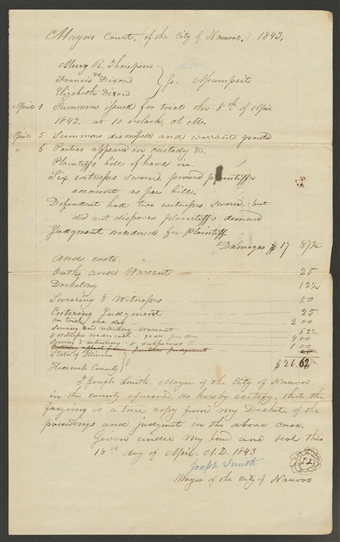 Mayors Court, of the City of Nauvoo. 1843.
Mercy R. Thompson
Francis Dixon
Elizabeth Dixon
Assumpsit
April 4 Summons issued for trial the 8th of April
1843. at 10 o'clock A.M.
April 5 Summons dismissed and warrant granted
" 6 Parties appeared in custody &c.
Plaintiffs bill of hand in.
Six witnesses sworn, proved plaintiffs
accounts as per bill.
Defendent had two witnesses sworn, but
did not disprove plaintiffs demand
Judgment rendered for Plaintiff.
Damages $17
and costs.
Oaths and Warrant 25
Docketing 12½
Swearing 8 Witnesses 50
Entering Judgment 25
on trial one day 2 00
Serving and returning warrant
8 witness per day 4 00
Serving & returning subpoenas 1 00
State of Illinois
Hancock County $26.62
I Joseph Smith, Mayor of the City of Nauvoo
in the county aforesaid, do hereby certify, that the
foregoing is a true copy from my Docket, of the
proceedings and judgment in the above case.
Given under my hand and seal this
18th day of April. A.D. 1843
Joseph Smith
Mayor of the City of Nauvoo